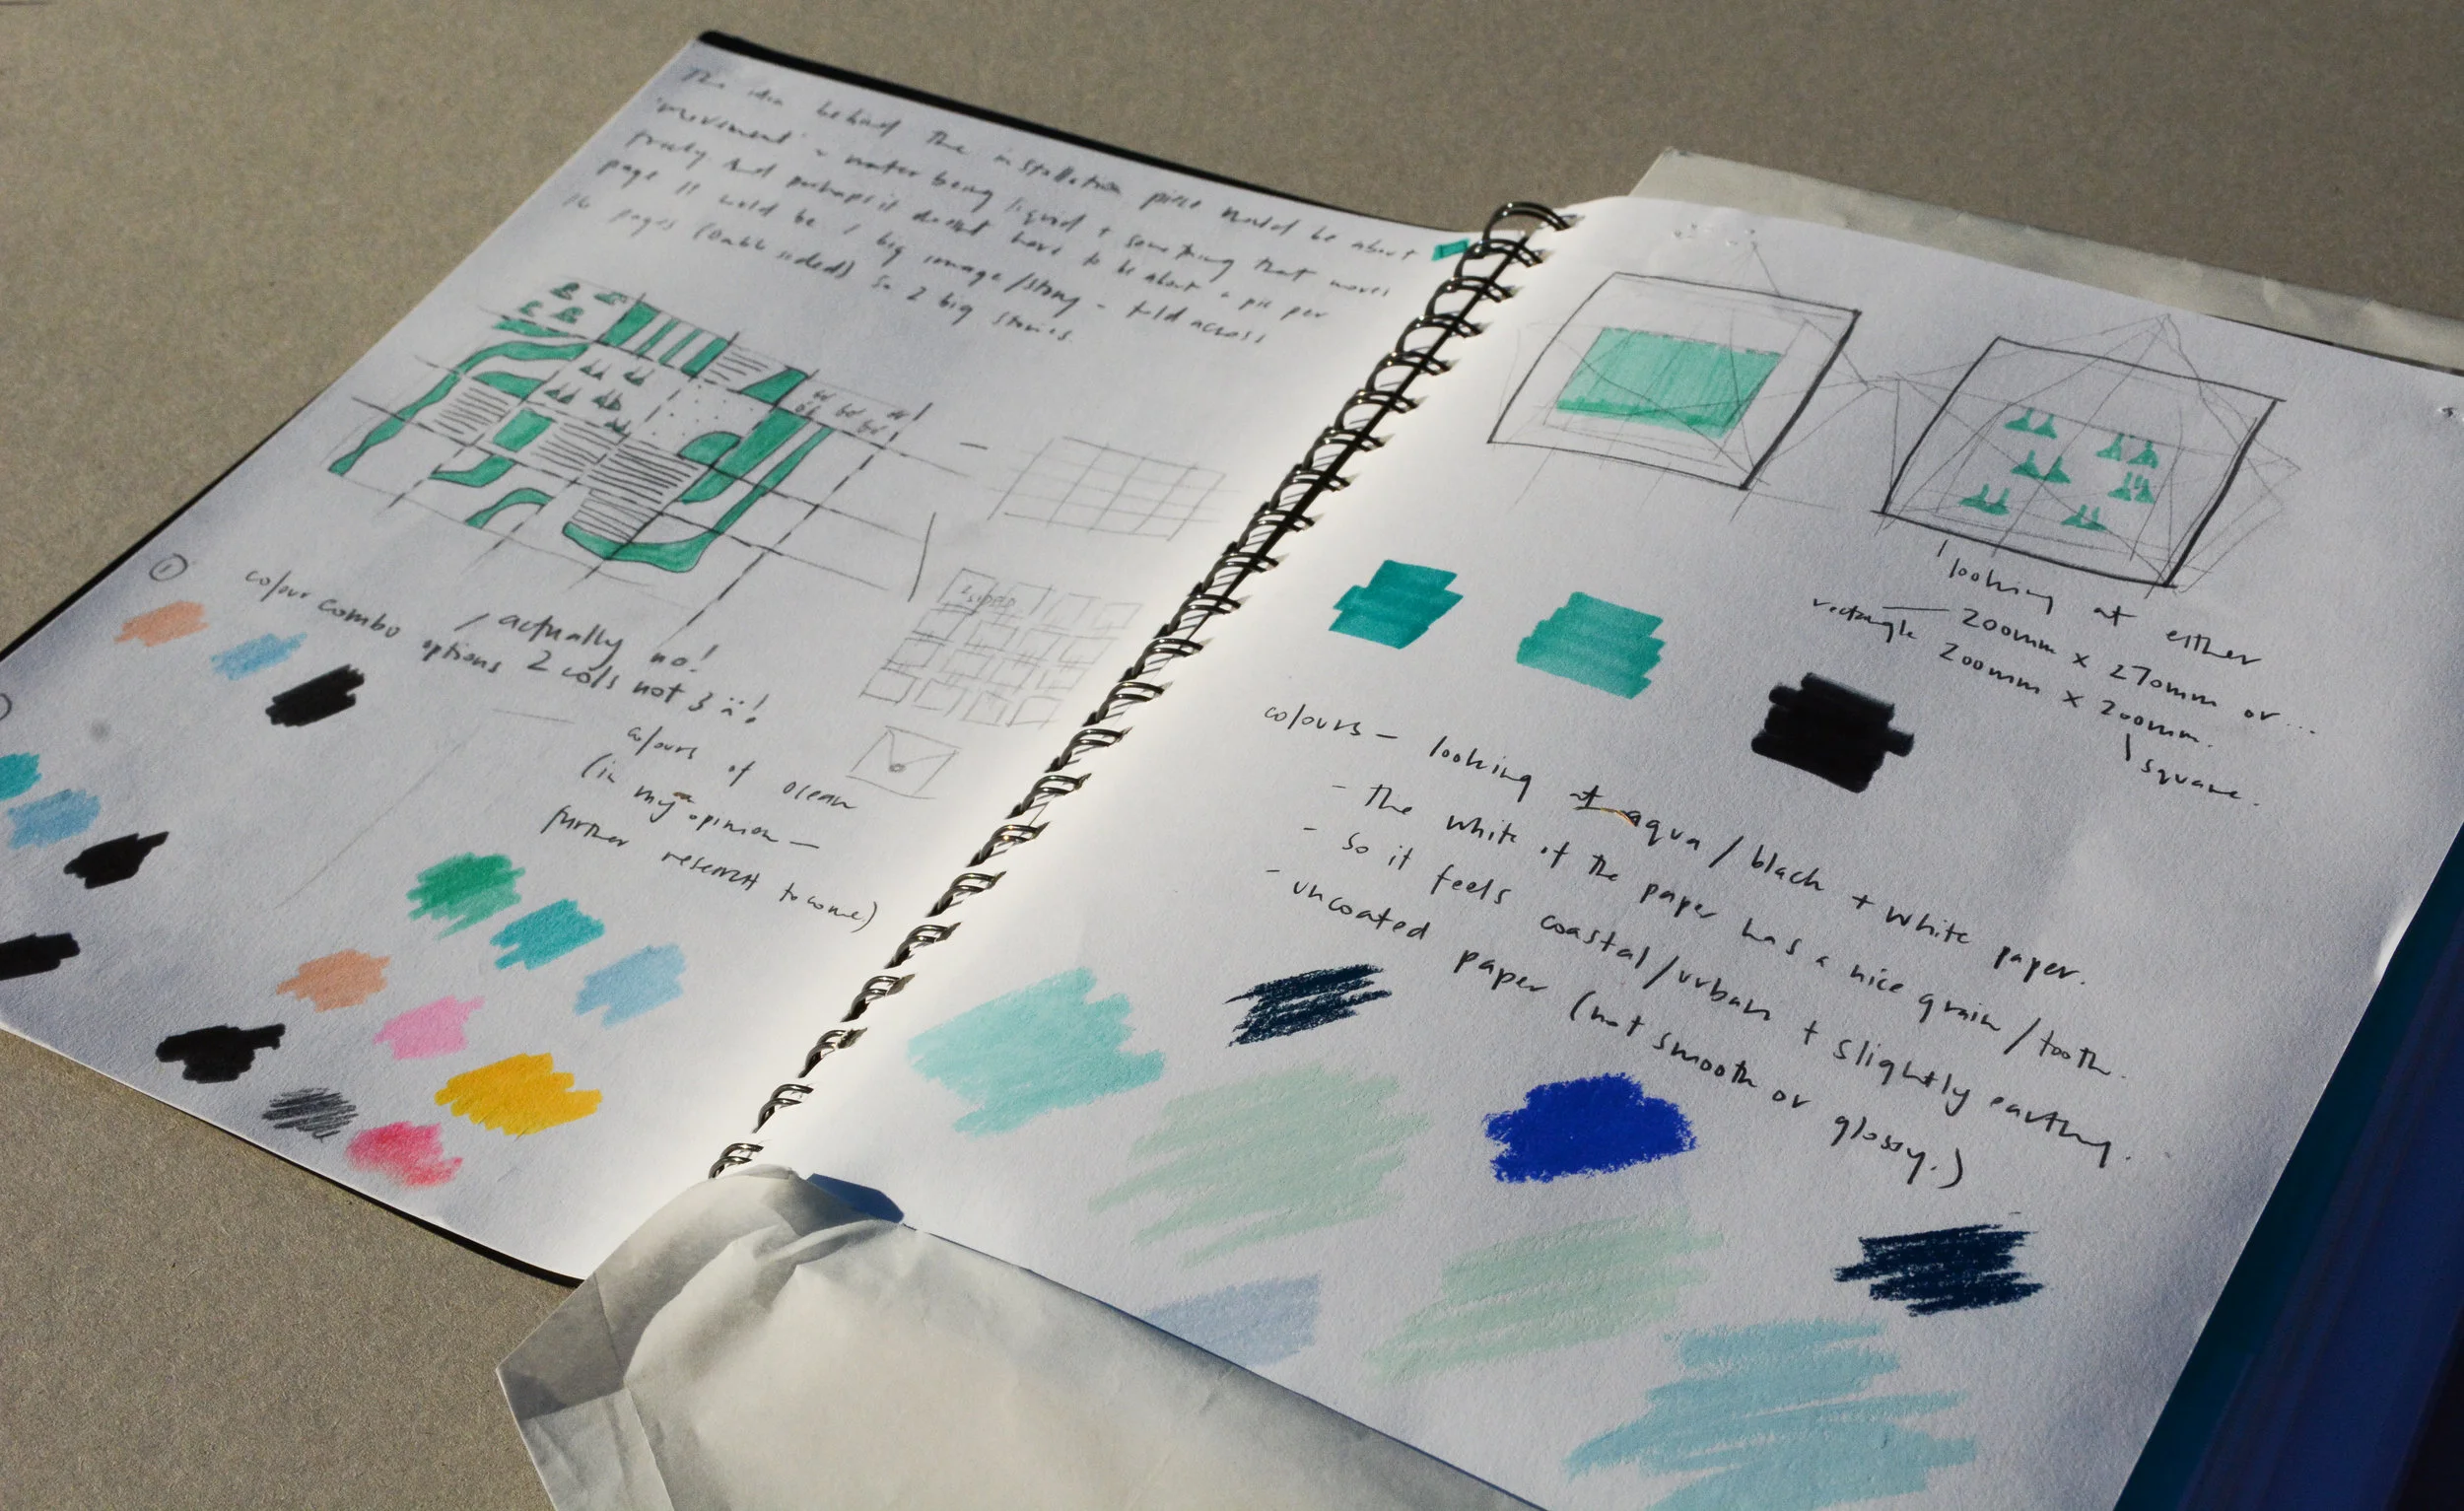 The idea behind the installation piece would be about
'movement' - water being liquid + something that moves
freely. And perhaps it doesn't have to be about a pic per
page it would be 1 big image/story - told across
16 pages (Double sided) so 2 big stories.
1
actually no!
colour combo options 2 cols not 3 !
2 SIDED
colours of ocean
(in my opinion -
further research to come)
looking at either
rectangle 200mm x 270mm or...
200mm x 200mm.
square.
colours - looking at aqua / black + white paper.
- The white of the paper has a nice grain / tooth.
- so it feels coastal / urban + slightly earthy.
- uncoated paper (not smooth or glossy.)